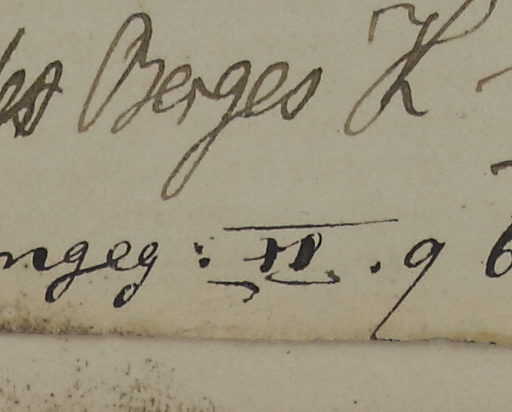 des Berges K
ngeg: II. 9 6